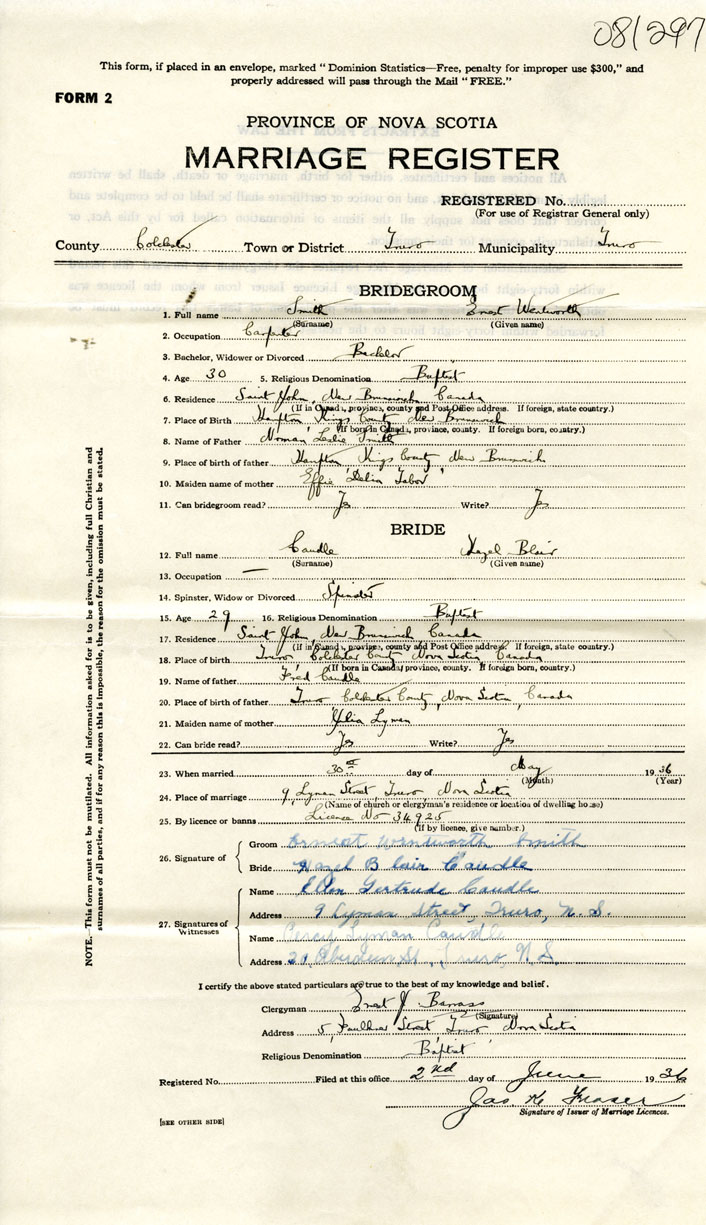 08/297
This form, if placed in an envelope, marked "Dominion Statistics—Free, penalty for improper use $300," and
properly addressed will pass through the Mail "FREE."
FORM 2
PROVINCE OF NOVA SCOTIA
MARRIAGE REGISTER
REGISTERED No.
(For use of Registrar General only)
County Colchester Town or District Truro Municipality Truro
BRIDEGROOM
1. Full name Smith Ernest Wentworth
(Surname) (Given name)
2. Occupation Carpenter
3. Bachelor, Widower or Divorced Bachelor
4. Age 30 5. Religious Denomination Baptist
6. Residence Saint John, New Brunswick Canada
(If in Canada, province, county and Post Office address. If foreign, state country.)
7. Place of Birth Hampton Kings County New Brunswick
(If born in Canada, province, county. If foreign born, country.)
8. Name of Father Norman Leslie Smith
9. Place of birth of father Hampton, Kings County New Brunswick
10. Maiden name of mother Effie Delia Tabor
11. Can bridegroom read? Yes Write? Yes
BRIDE
12. Full name Caudle Hazel Blair
(Surname) (Given name)
13. Occupation —
14. Spinster, Widow or Divorced Spinster
15. Age 29 16. Religious Denomination Baptist
17. Residence Saint John, New Brunswick Canada
(If in Canada, province, county and Post Office address. If foreign, state country.)
18. Place of birth Truro Colchester County Nova Scotia, Canada
(If born in Canada, province, county. If foreign born, country.)
19. Name of father Fred Caudle
20. Place of birth of father Truro Colchester County, Nova Scotia, Canada
21. Maiden name of mother Lyman
22. Can bride read? Yes Write? Yes
23. When married 30th day of May 1936
(Month) (Year)
24. Place of marriage 9 Lyman Street, Truro Nova Scotia
(Name of church or clergyman's residence or location of dwelling house)
25. By licence or banns Licence No 34925
(If by licence, give number.)
26. Signature of Groom Ernest Wentworth Smith
Bride Hazel Blair Caudle
27. Signatures of Witnesses
Name Ellen Gertrude Caudle
Address 9 Lyman Street, Truro, N.S.
Name Percy Lyman Caudle
Address 21, Aberdeen St., Truro, N.S.
I certify the above stated particulars are true to the best of my knowledge and belief.
Clergyman Ernest J. Barrass
(Signature)
Address 5, Faulkner Street Truro Nova Scotia
Religious Denomination Baptist
Registered No. Filed at this office 2nd day of June 1936
Jas K Fraser
Signature of Issuer of Marriage Licences.
[SEE OTHER SIDE]
NOTE. This form must not be mutilated. All information asked for is to be given, including full Christian and
surnames of all parties, and if for any reason this is impossible, the reason for the omission must be stated.